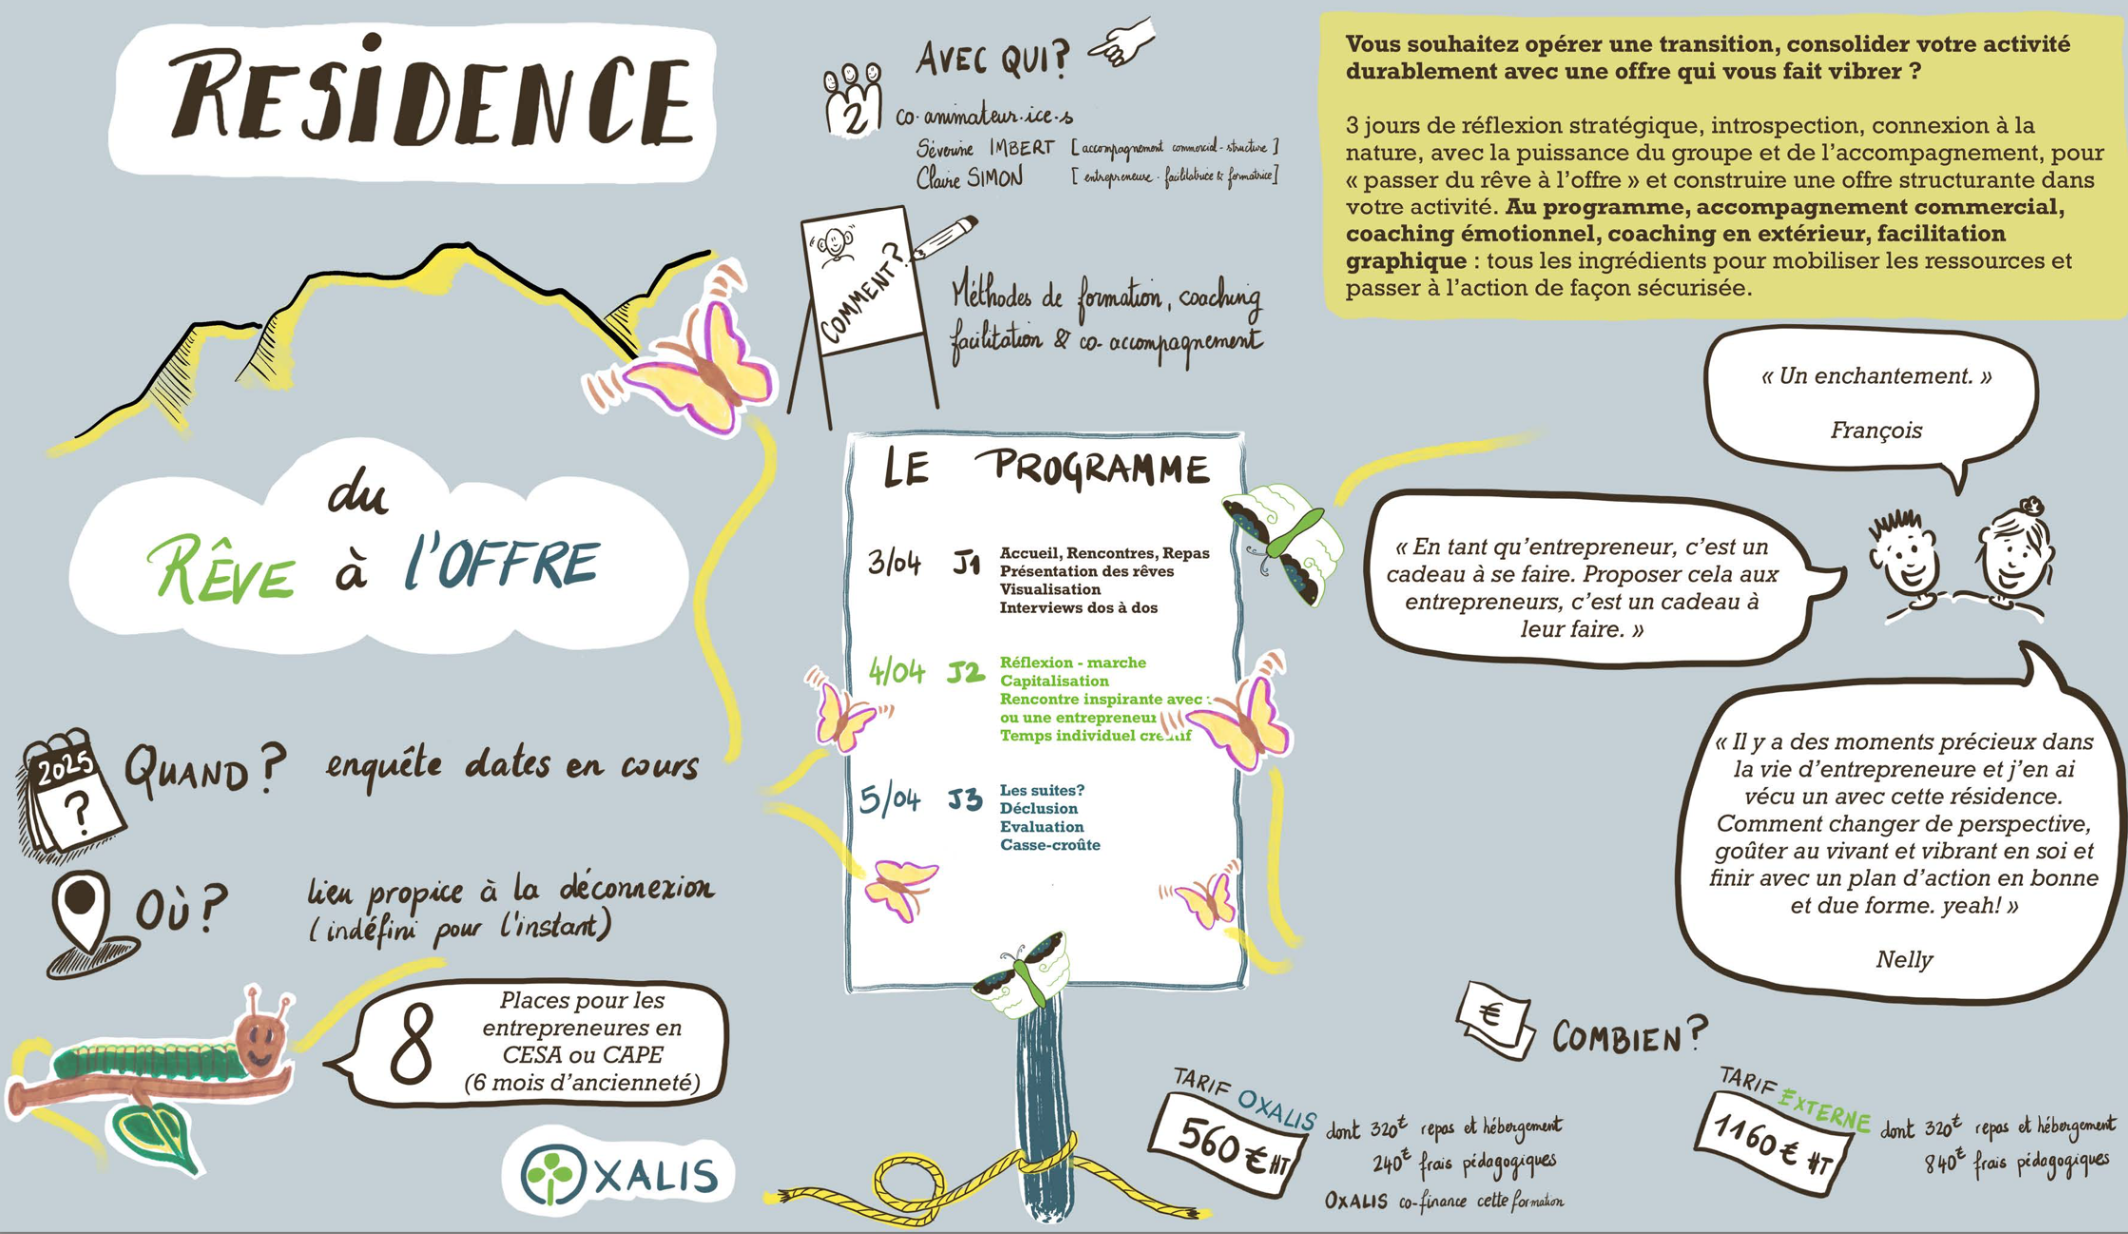 RESIDENCE
du
RÊVE à l'OFFRE
QUAND? enquête dates en cours
2025
?
Où?
lieu propice à la déconnexion
(indéfini pour l'instant)
8
Places pour les
entrepreneures en
CESA ou CAPE
(6 mois d'ancienneté)
OXALIS
AVEC QUI?
2
co-animateur·ice·s
Séverine IMBERT [accompagnement commercial-structure]
Claire SIMON [entrepreneuse-facilitatrice & formatrice]
COMMENT?
Méthodes de formation, coaching
facilitation & co-accompagnement
LE PROGRAMME
3/04 J1
Accueil, Rencontres, Repas
Présentation des rêves
Visualisation
Interviews dos à dos
4/04 J2
Réflexion - marche
Capitalisation
Rencontre inspirante avec :
ou une entrepreneur
Temps individuel
5/04 J3
Les suites?
Déclusion
Evaluation
Casse-croûte
Vous souhaitez opérer une transition, consolider votre activité
durablement avec une offre qui vous fait vibrer ?
3 jours de réflexion stratégique, introspection, connexion à la
nature, avec la puissance du groupe et de l'accompagnement, pour
« passer du rêve à l'offre » et construire une offre structurante dans
votre activité. Au programme, accompagnement commercial,
coaching émotionnel, coaching en extérieur, facilitation
graphique : tous les ingrédients pour mobiliser les ressources et
passer à l'action de façon sécurisée.
« Un enchantement. »
François
« En tant qu'entrepreneur, c'est un
cadeau à se faire. Proposer cela aux
entrepreneurs, c'est un cadeau à
leur faire. »
« Il y a des moments précieux dans
la vie d'entrepreneure et j'en ai
vécu un avec cette résidence.
Comment changer de perspective,
goûter au vivant et vibrant en soi et
finir avec un plan d'action en bonne
et due forme. yeah! »
Nelly
€
COMBIEN?
TARIF OXALIS
560 € HT
dont 320€ repas et hébergement
240€ frais pédagogiques
OXALIS co-finance cette formation
TARIF EXTERNE
1160 € HT
dont 320€ repas et hébergement
840€ frais pédagogiques